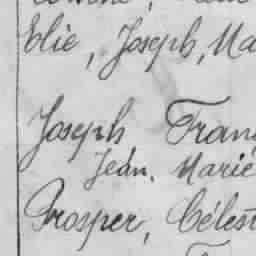 Elie, Joseph, Ma
Joseph Fran
Jean. Marie
Prosper, Célest